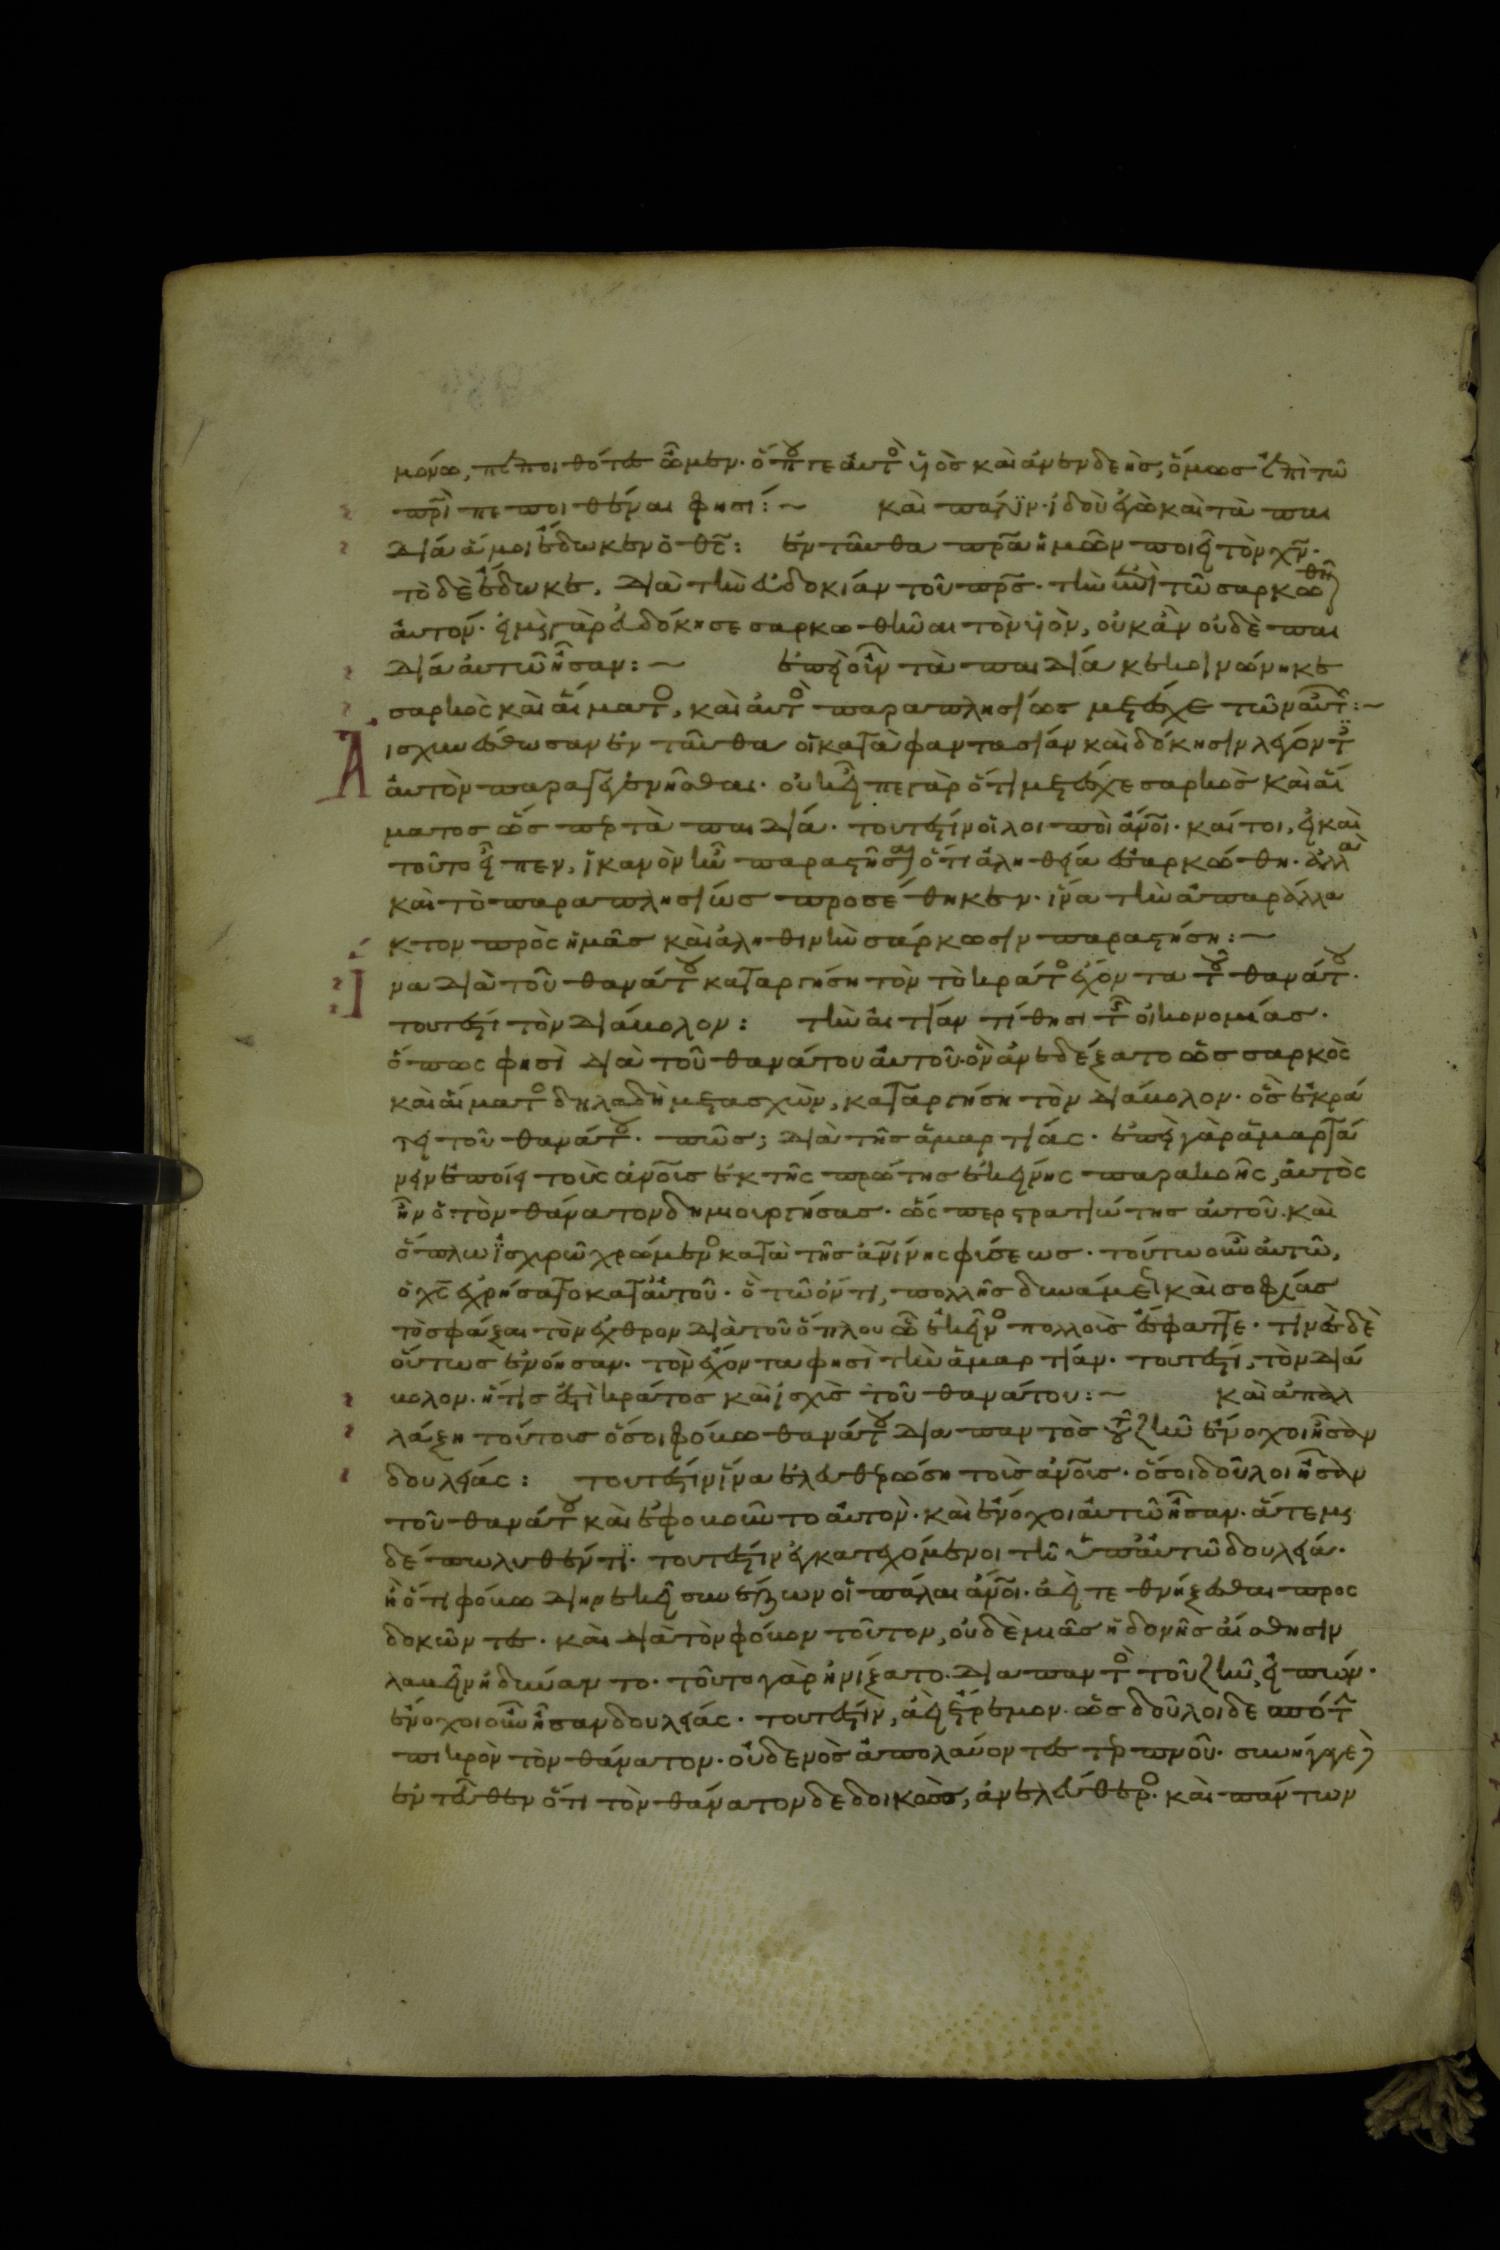 μόνω, πεποιθότες ὦμεν. ὅπου γε αὐτὸς υἱὸς καὶ ἀνενδεὴς, ὅμως ἐπὶ τῶ
πρὶ πεποιθέναι φησί:~ καὶ πάλιν· ἰδοὺ ἐγὼ καὶ τὰ παι
δία ἅ μοι ἔδωκεν ὁ θς: ἐνταῦθα πρα ἡμῶν ποιεῖ τὸν χν·
τὸ δὲ ἔδωκε, διὰ τὴν εὐδοκίαν τοῦ πρς· τὴν ἐπὶ τῶ σαρκωθῆναι
αὐτόν· εἰ μὴ γὰρ εὐδόκησε σαρκωθῆναι τὸν υἱὸν, οὐκ ἂν οὐδὲ παι
δία αὐτῶ ἦσαν:~ ἐπεὶ οὖν τὰ παιδία κεκοινώνηκε
σαρκὸς καὶ αἵματος, καὶ αὐτὸς παραπλησίως μετέσχε τῶν αὐτῶν:~
Αἰσχυνέσθωσαν ἐνταῦθα οἱ κατὰ φαντασίαν καὶ δόκησιν λέγοντες
αὐτὸν παραγεγενῆσθαι· οὐκ εἶπε γὰρ ὅτι μετέσχε σαρκὸς καὶ αἵ
ματος ὥσπερ τὰ παιδία· τουτέστιν οἱ λοιποὶ ἄνοι· καίτοι, εἰ καὶ
τοῦτο εἶπεν, ἱκανὸν ἦν παραστῆσαι ὅτι ἀληθεία ἐσαρκώθη· ἀλλὰ
καὶ τὸ παραπλησίως προσέθηκεν· ἵνα τὴν ἀπαράλλα
κτον πρὸς ἡμᾶς καὶ ἀληθινὴν σάρκωσιν παραστήση:~
Ἵνα διὰ τοῦ θανάτου καταργήση τὸν τὸ κράτος ἔχοντα τοῦ θανάτου·
τουτέστι τὸν διάβολον: τὴν αἰτίαν τίθησι τῆς οἰκονομίας·
ὅπως φησὶ διὰ τοῦ θανάτου αὐτοῦ· ὃν ἀνεδέξατο ὡς σαρκὸς
καὶ αἵματος δηλαδὴ μετασχὼν, καταργήση τὸν διάβολον· ὃς ἐκρά
τει τοῦ θανάτου· πῶς; διὰ τῆς ἁμαρτίας· ἐπεὶ γὰρ ἁμαρτά
νειν ἐποίει τοὺς ἀνους ἐκ τῆς πρώτης ἐκείνης παρακοῆς, αὐτὸς
ἦν ὁ τὸν θάνατον δημιουργήσας· ὥσπερ στρατιώτης αὐτοῦ· καὶ
ὅπλω ἰσχυρῶ χρώμενος κατὰ τῆς ἀνίνης φύσεως· τούτω οὖν αὐτῶ,
ὁ χς ἐχρήσατο κατ' αὐτοῦ· ὃ τῶ ὄντι, πολλῆς δυνάμεως καὶ σοφίας
τὸ σφάξαι τὸν ἐχθρὸν διὰ τοῦ ὅπλου ὧ ἐκεῖνος πολλοὺς ἔσφαττε· τινὲς δὲ
οὕτως ἐνόησαν· τὸν ἔχοντα φησὶ τὴν ἁμαρτίαν· τουτέστι, τὸν διά
βολον· ἥτις ἐστὶ κράτος καὶ ἰσχὺς τοῦ θανάτου:~ καὶ ἀπαλ
λάξη τούτους ὅσοι φόβω θανάτου διαπαντὸς τοῦ ζῆν ἔνοχοι ἦσαν
δουλείας: τουτέστιν ἵνα ἐλευθερώση τοὺς ἀνους· ὅσοι δοῦλοι ἦσαν
τοῦ θανάτου καὶ ἐφοβοῦντο αὐτὸν· καὶ ἔνοχοι αὐτῶ ἦσαν· ἅτε μη
δέπω λυθέντες· τουτέστιν ἐγκατεχόμενοι τῆ ὑπ' αὐτῶ δουλεία·
ἢ ὅτι φόβω διηνεκεῖ συνέζων οἱ πάλαι ἄνοι· ἀεί τε θνήξεσθαι προσ
δοκῶντες· καὶ διὰ τὸν φόβον τοῦτον, οὐδεμιᾶς ἡδονῆς αἴσθησιν
λαβεῖν ἠδύναντο· τοῦτο γὰρ ἠνίξατο· διαπαντὸς τοῦ ζῆν, εἰπών·
ἔνοχοι οὖν ἦσαν δουλείας· τουτέστιν, ἀεὶ ἔτρεμον· ὡς δοῦλοι δεσπότην
πικρὸν τὸν θάνατον· οὐδενὸς ἀπολαύοντες τερπνοῦ· συνῆγε
ἐντεῦθεν ὅτι τὸν θάνατον δεδοικὼς, ἀνελεύθερος· καὶ πάντων